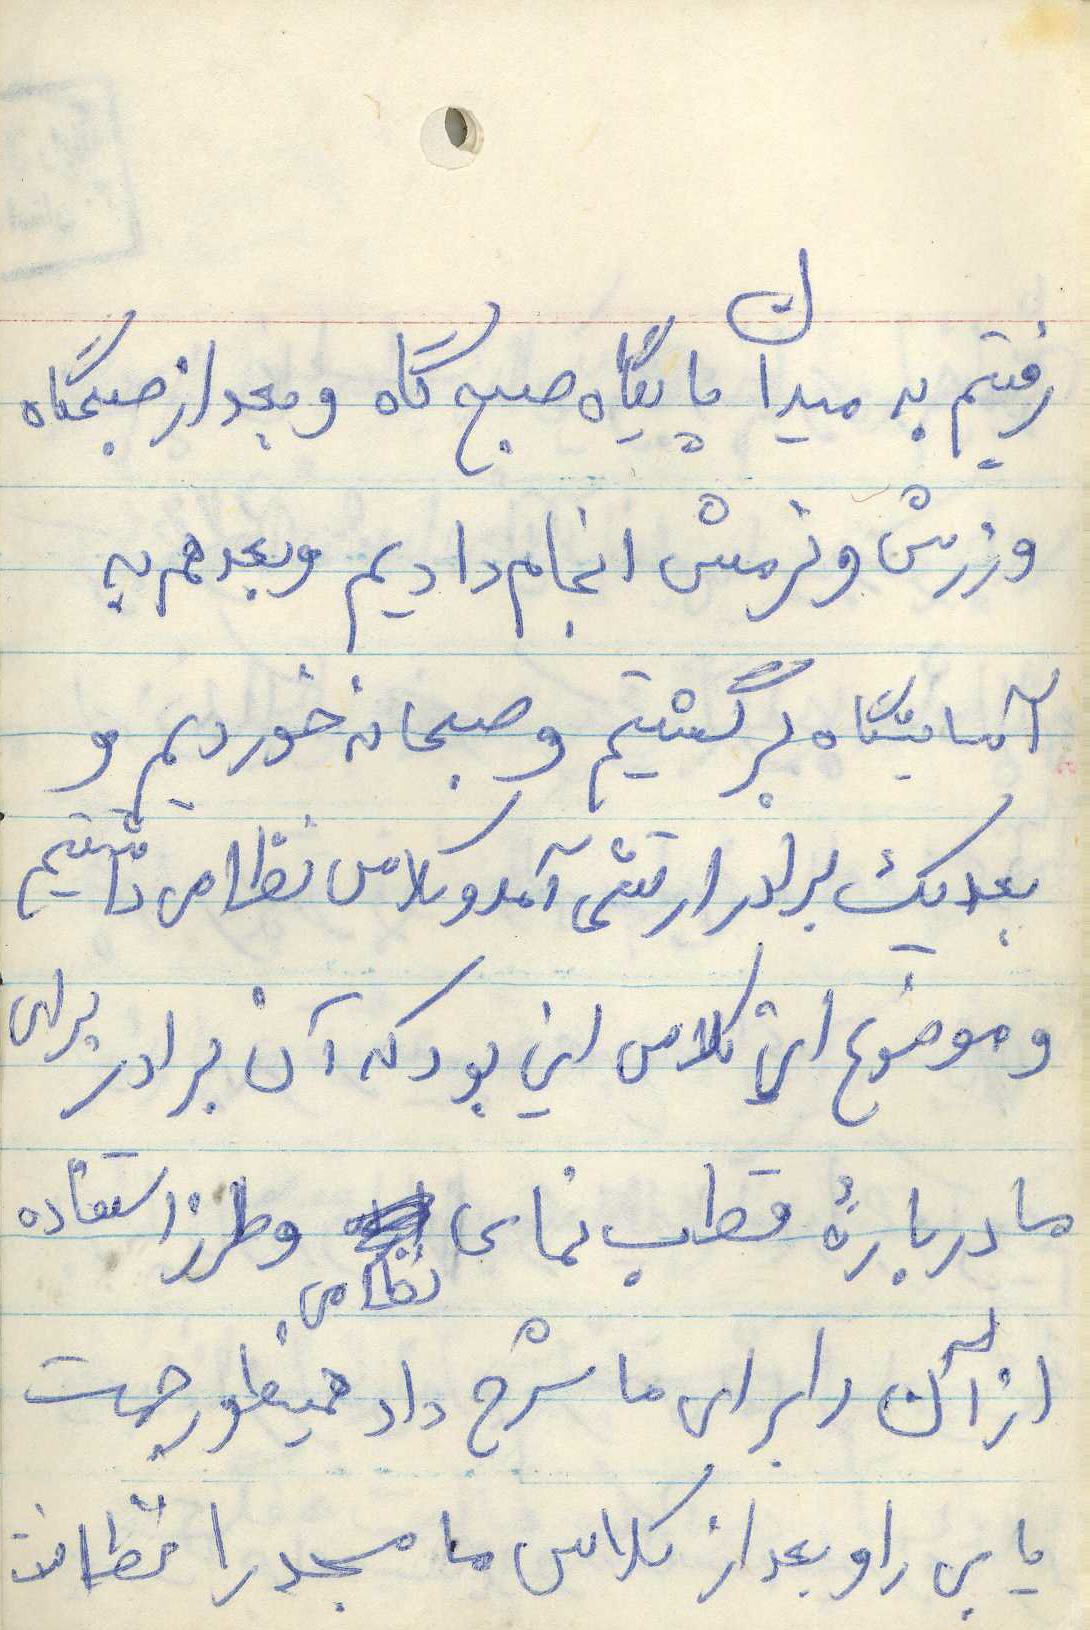 رفتیم به میدان پایگاه صبح گاه و بعد از صبحگاه
ورزش و نرمش انجام دادیم و بعد هم به
آسایشگاه برگشتیم و صبحانه خوردیم و
بعد یک برادر ارتشی آمد و کلاس نظامی داشتیم
و موضوع این کلاس این بود که آن برادر برای
ما دربارهٔ قطب نمای نظامی و طرز استفاده
از آن را برای ما شرح داد همینطور جهت
یابی را و بعد از کلاس ما مسجد را نظافت